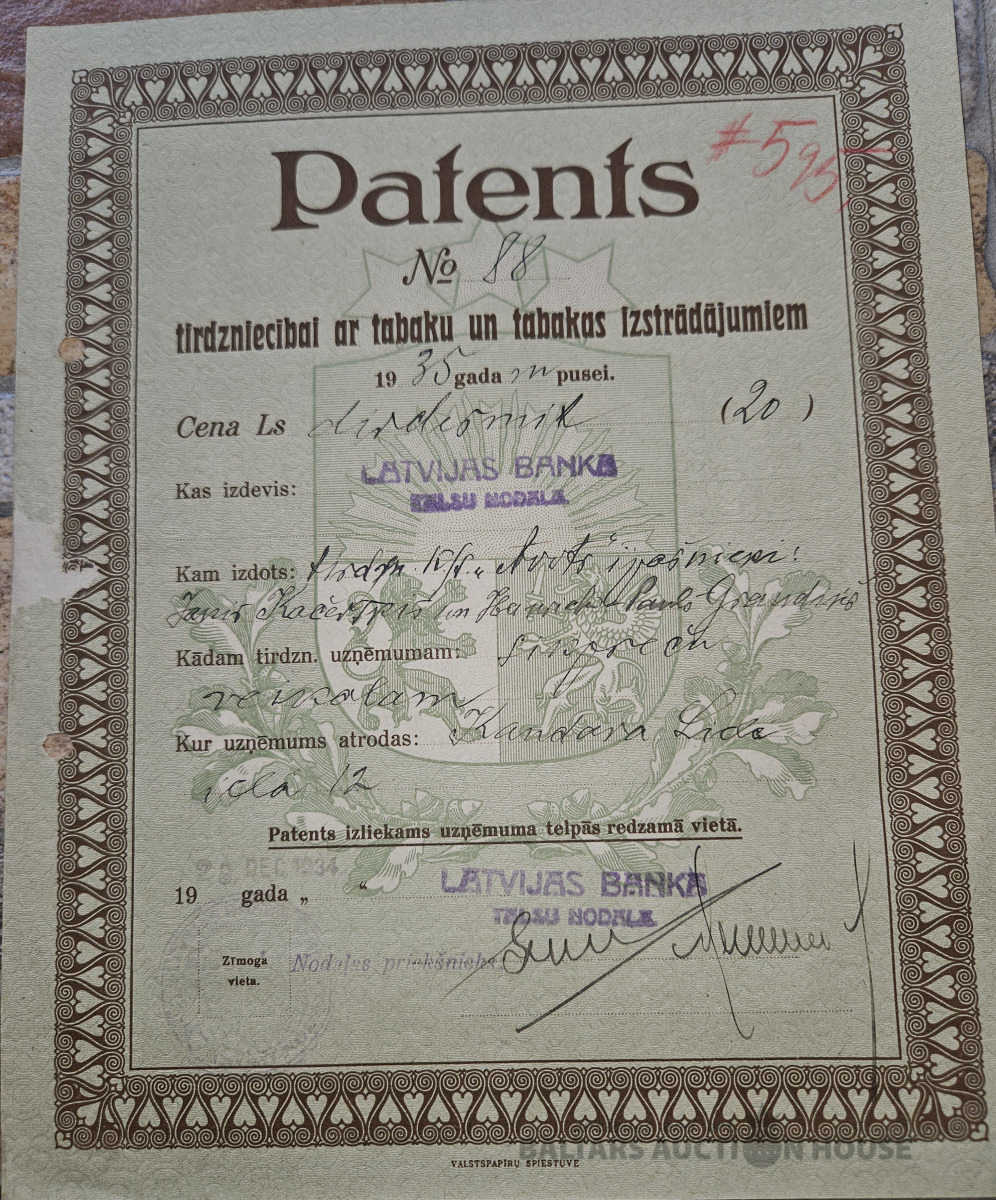 # 595
Patents
№ 88
tirdzniecībai ar tabaku un tabakas izstrādājumiem
1935 gada pusei.
Cena Ls divdesmit (20)
LATVIJAS BANKA
TALSU NODAĻA.
Kas izdevis:
Kam izdots: „Avots" īpašnieki:
un Pauls
Kādam tirdzn. uzņēmumam:
veikalam
Kur uzņēmums atrodas: Kandava
ielā 12
Patents izliekams uzņēmuma telpās redzamā vietā.
DEC 1934
19 gada „ “
LATVIJAS BANKA
TALSU NODAĻA.
Zīmoga
vieta.
Nodaļas priekšnieks:
VALSTSPAPĪRU SPIESTUVE
BALTARS AUCTION HOUSE